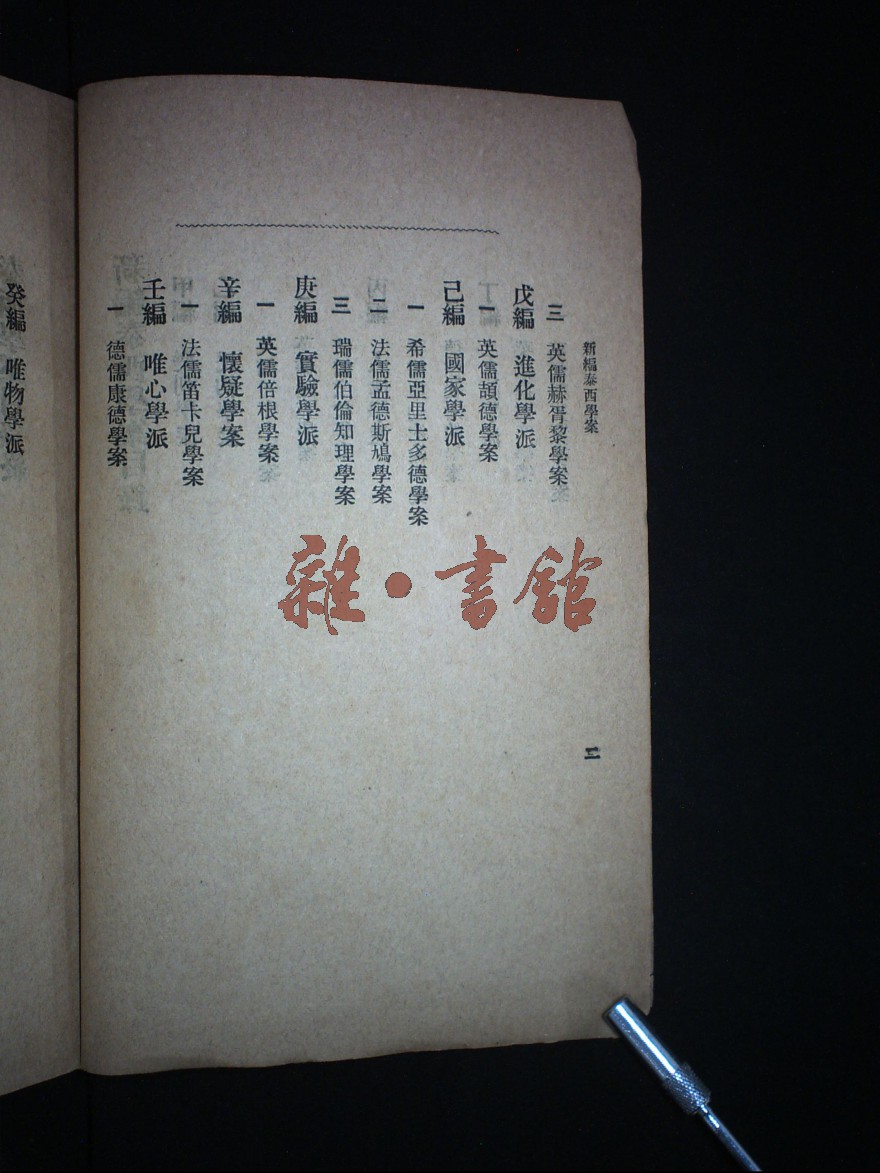 新編泰西學案
三 英儒赫胥黎學案
戊編 進化學派
一 英儒頡德學案
己編 國家學派
一 希儒亞里士多德學案
二 法儒孟德斯鳩學案
三 瑞儒伯倫知理學案
庚編 實驗學派
一 英儒倍根學案
辛編 懷疑學案
一 法儒笛卡兒學案
壬編 唯心學派
一 德儒康德學案
二
癸編 唯物學派
雜·書館